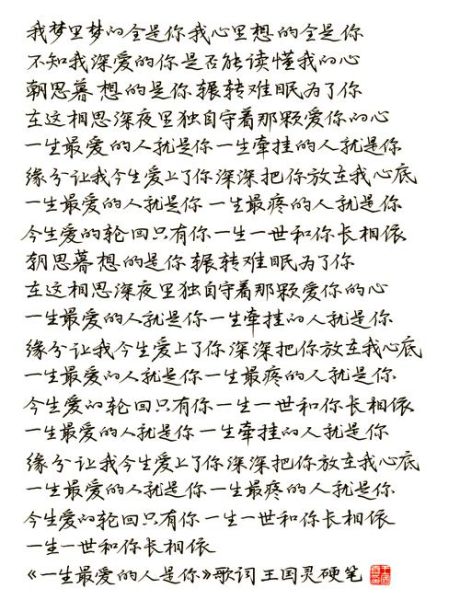 我梦里梦的全是你我心里想的全是你
不知我深爱的你是否能读懂我的心
朝思暮想的是你辗转难眠为了你
在这相思深夜里独自守着那颗爱你的心
一生最爱的人就是你一生牵挂的人就是你
缘分让我今生爱上了你深深把你放在我心底
一生最爱的人就是你一生最疼的人就是你
今生爱的轮回只有你一生一世和你长相依
朝思暮想的是你辗转难眠为了你
在这相思深夜里独自守着那颗爱你的心
一生最爱的人就是你一生牵挂的人就是你
缘分让我今生爱上了你深深把你放在我心底
一生最爱的人就是你一生最疼的人就是你
今生爱的轮回只有你一生一世和你长相依
一生最爱的人就是你一生牵挂的人就是你
缘分让我今生爱上了你深深把你放在我心底
一生最爱的人就是你一生最疼的人就是你
今生爱的轮回只有你一生一世和你长相依
一生一世和你长相依
《一生最爱的人是你》歌词王国灵硬笔